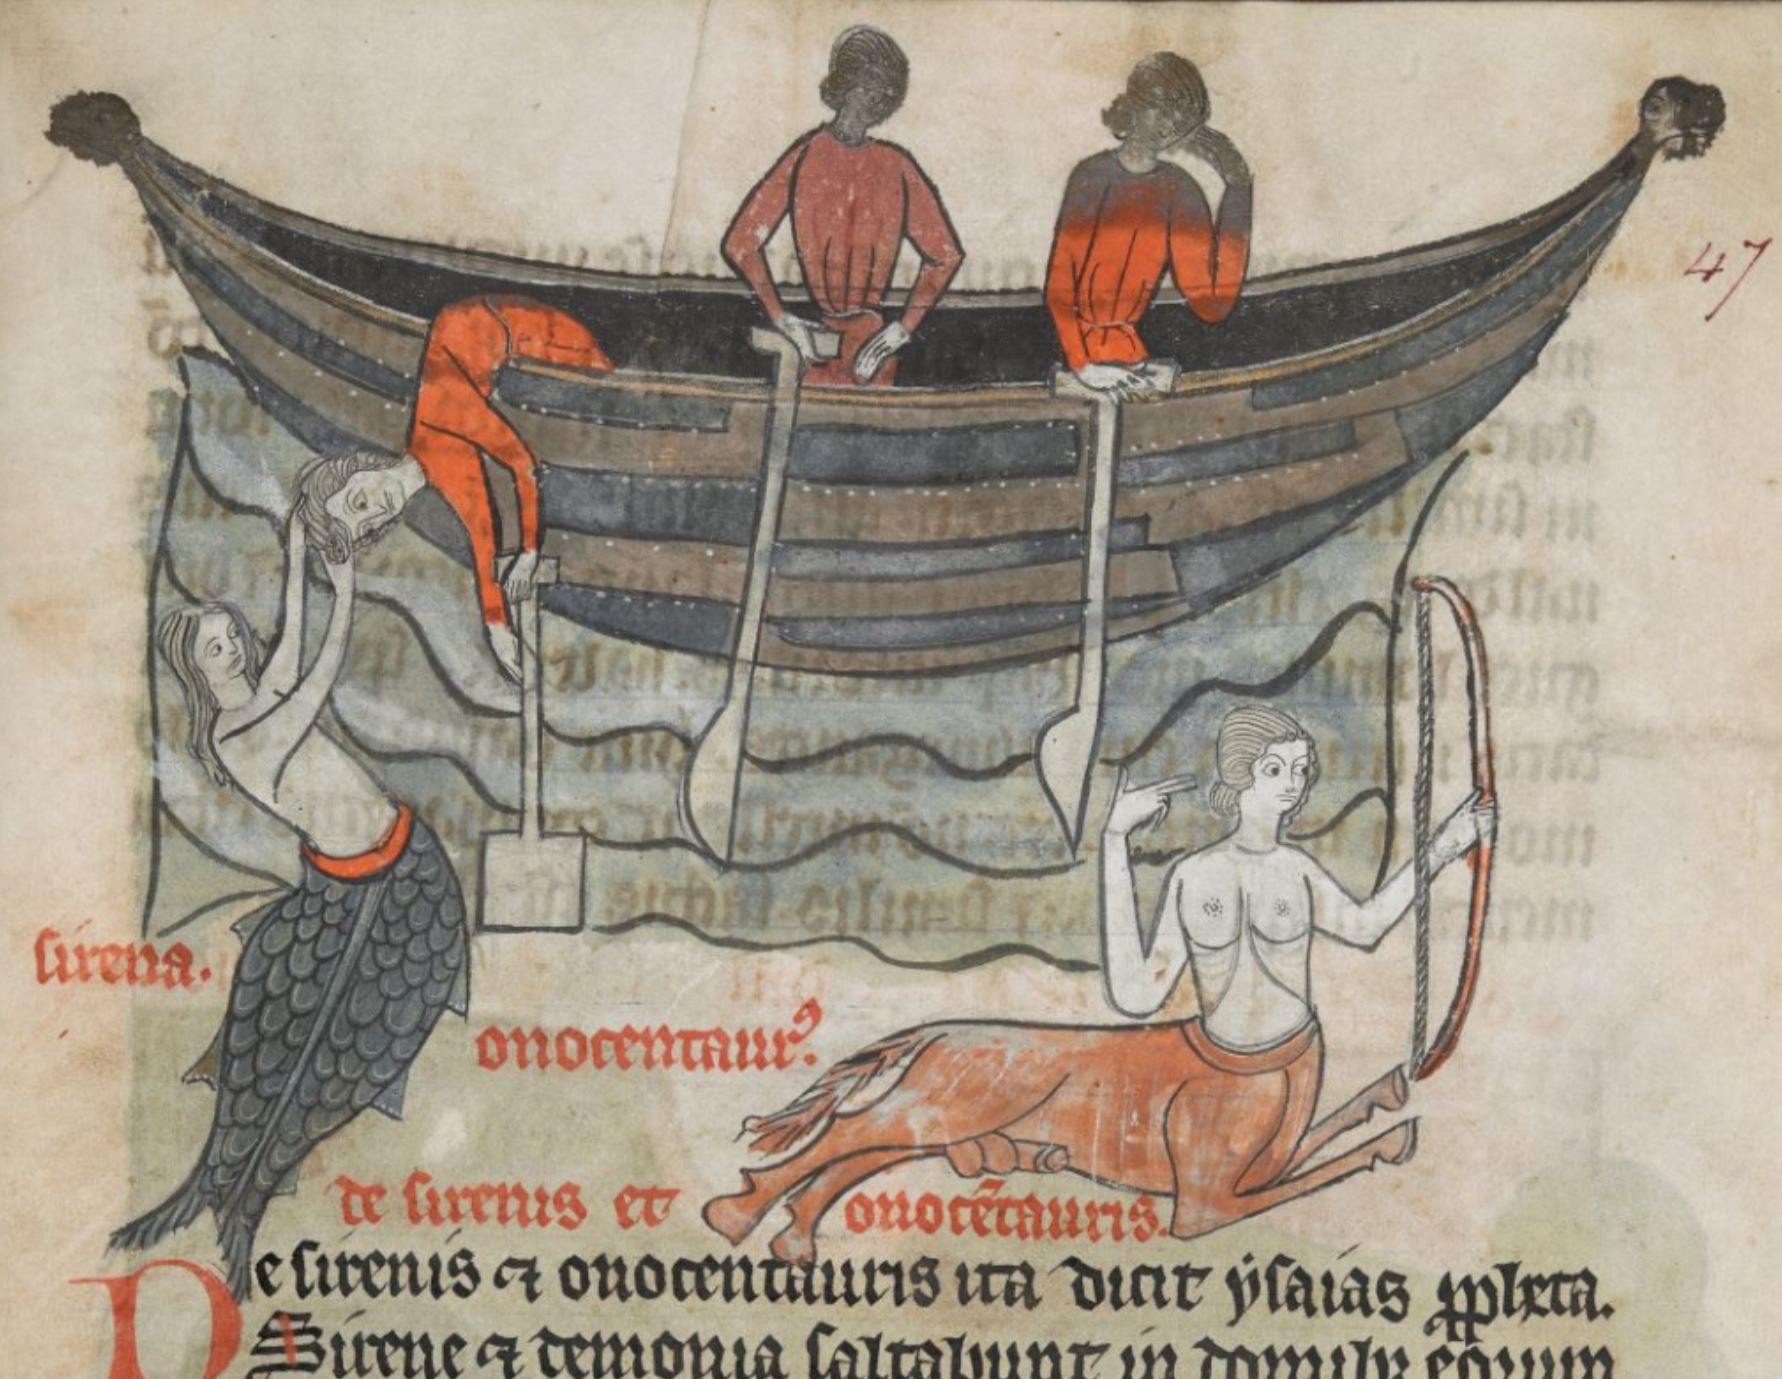 47
sirena.
onocentaurꝰ.
de sirenis et onocẽtauris.
De sirenis ⁊ onocentauris ita dicit ẏsaias ꝓpheta.
Sirene ⁊ demonia saltabunt in domibꝫ eorum